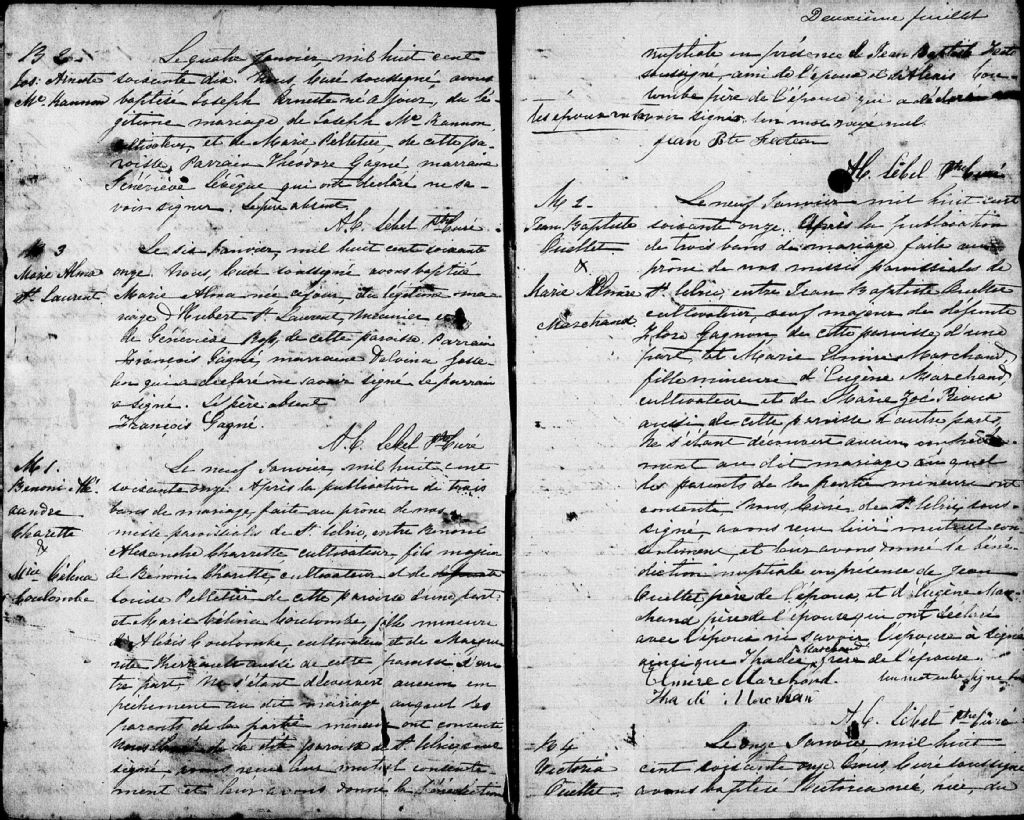 B 2
Jos: Arneste
Mc Kannon
Le quatre Janvier, mil huit cent
soixante dix. Nous, Curé soussigné, avons
baptisé Joseph Arneste né ce jour, du lé-
gitime mariage de Joseph Mc Kannon
cultivateur, et de Marie Pelletier, de cette pa-
roisse, Parrain Theodore Gagné, marraine
Généviève Lévêque qui ont déclaré ne sa-
voir signer. Le père absent
A. C. Lebel Ptre Curé
B 3
Marie Alma
St Laurent
Le six Janvier, mil huit cent soixante
onze. Nous, Curé soussigné avons baptisé
Marie Alma née ce jour, du légitime ma-
riage d'Hubert St Laurent, meunier et
de Généviève Ross, de cette paroisse, Parrain
François Gagné, marraine Delvina Josse-
lin qui a déclaré ne savoir signé le parrain
a signé. Le père absent
François Gagné
A. C. Lebel Ptre Curé
M 1.
Benoni
Charette
&
Mie Célina
Coulombe
Le neuf Janvier, mil huit cent
soixante onze. Après la publication de trois
bans de mariage, faite au prône de nos
messes paroissiales de St Eloi, entre Bénoni
Alexandre Charrette cultivateur, fils majeur
de Bénoni Charette, cultivateur et de
Louise Pelletier de cette paroisse d'une part
et Marie Célina Coulombe, fille mineure
de Alexis Coulombe, cultivateur et de Margue-
rite Therriault aussi de cette paroisse d'au-
tre part, Ne s'étant découvert aucun em-
pêchement au dit mariage auquel les
parents de la partie mineure ont consenti
Nous Curé de la dite paroisse de St Eloi sous-
signé, avons reçu leur mutuel consente-
ment et leur avons donné la bénédiction
Deuxième feuillet
nuptiale en présence de Jean Baptiste
soussigné, ami de l'époux et d'Alexis Cou-
lombe père de l'épouse qui a déclaré
les époux ne savoir signer. Un mot rayé nul
Jean Bte Fecteau
A. C. Lebel Ptre Curé
M 2
Jean Baptiste
Ouellet
&
Marie Elmire
Marchand
Le neuf Janvier mil huit cent
soixante onze. Après la publication
de trois bans de mariage faite au
prône de nos messes paroissiales de
St Eloi, entre Jean Baptiste Ouellet
cultivateur, veuf majeur de défunte
Flore Gagnon de cette paroisse, d'une
part et Marie Elmire Marchand,
fille mineure d'Eugène Marchand,
cultivateur et de Marie Zoé Rioux
aussi de cette paroisse d'autre part,
Ne s'étant découvert aucun empêche-
ment au dit mariage auquel
les parents de la partie mineure ont
consenti Nous, Curé de St Eloi, sous-
signé, avons reçu leur mutuel con-
sentement et leur avons donné la béné-
diction nuptiale en présence de Jean
Ouellet, père de l'époux, et d'Eugène Mar-
chand père de l'épouse qui ont déclaré
avec l'époux ne savoir l'épouse a signé
ainsi que Thadée Marchand frère de l'épouse.
Elmire Marchand
Marchan
A. C. Lebel Ptre Curé
B 4
Victoria
Ouellet
Le onze Janvier mil huit
cent soixante onze Nous, Curé soussigné
avons baptisé Victoria née, hier, du